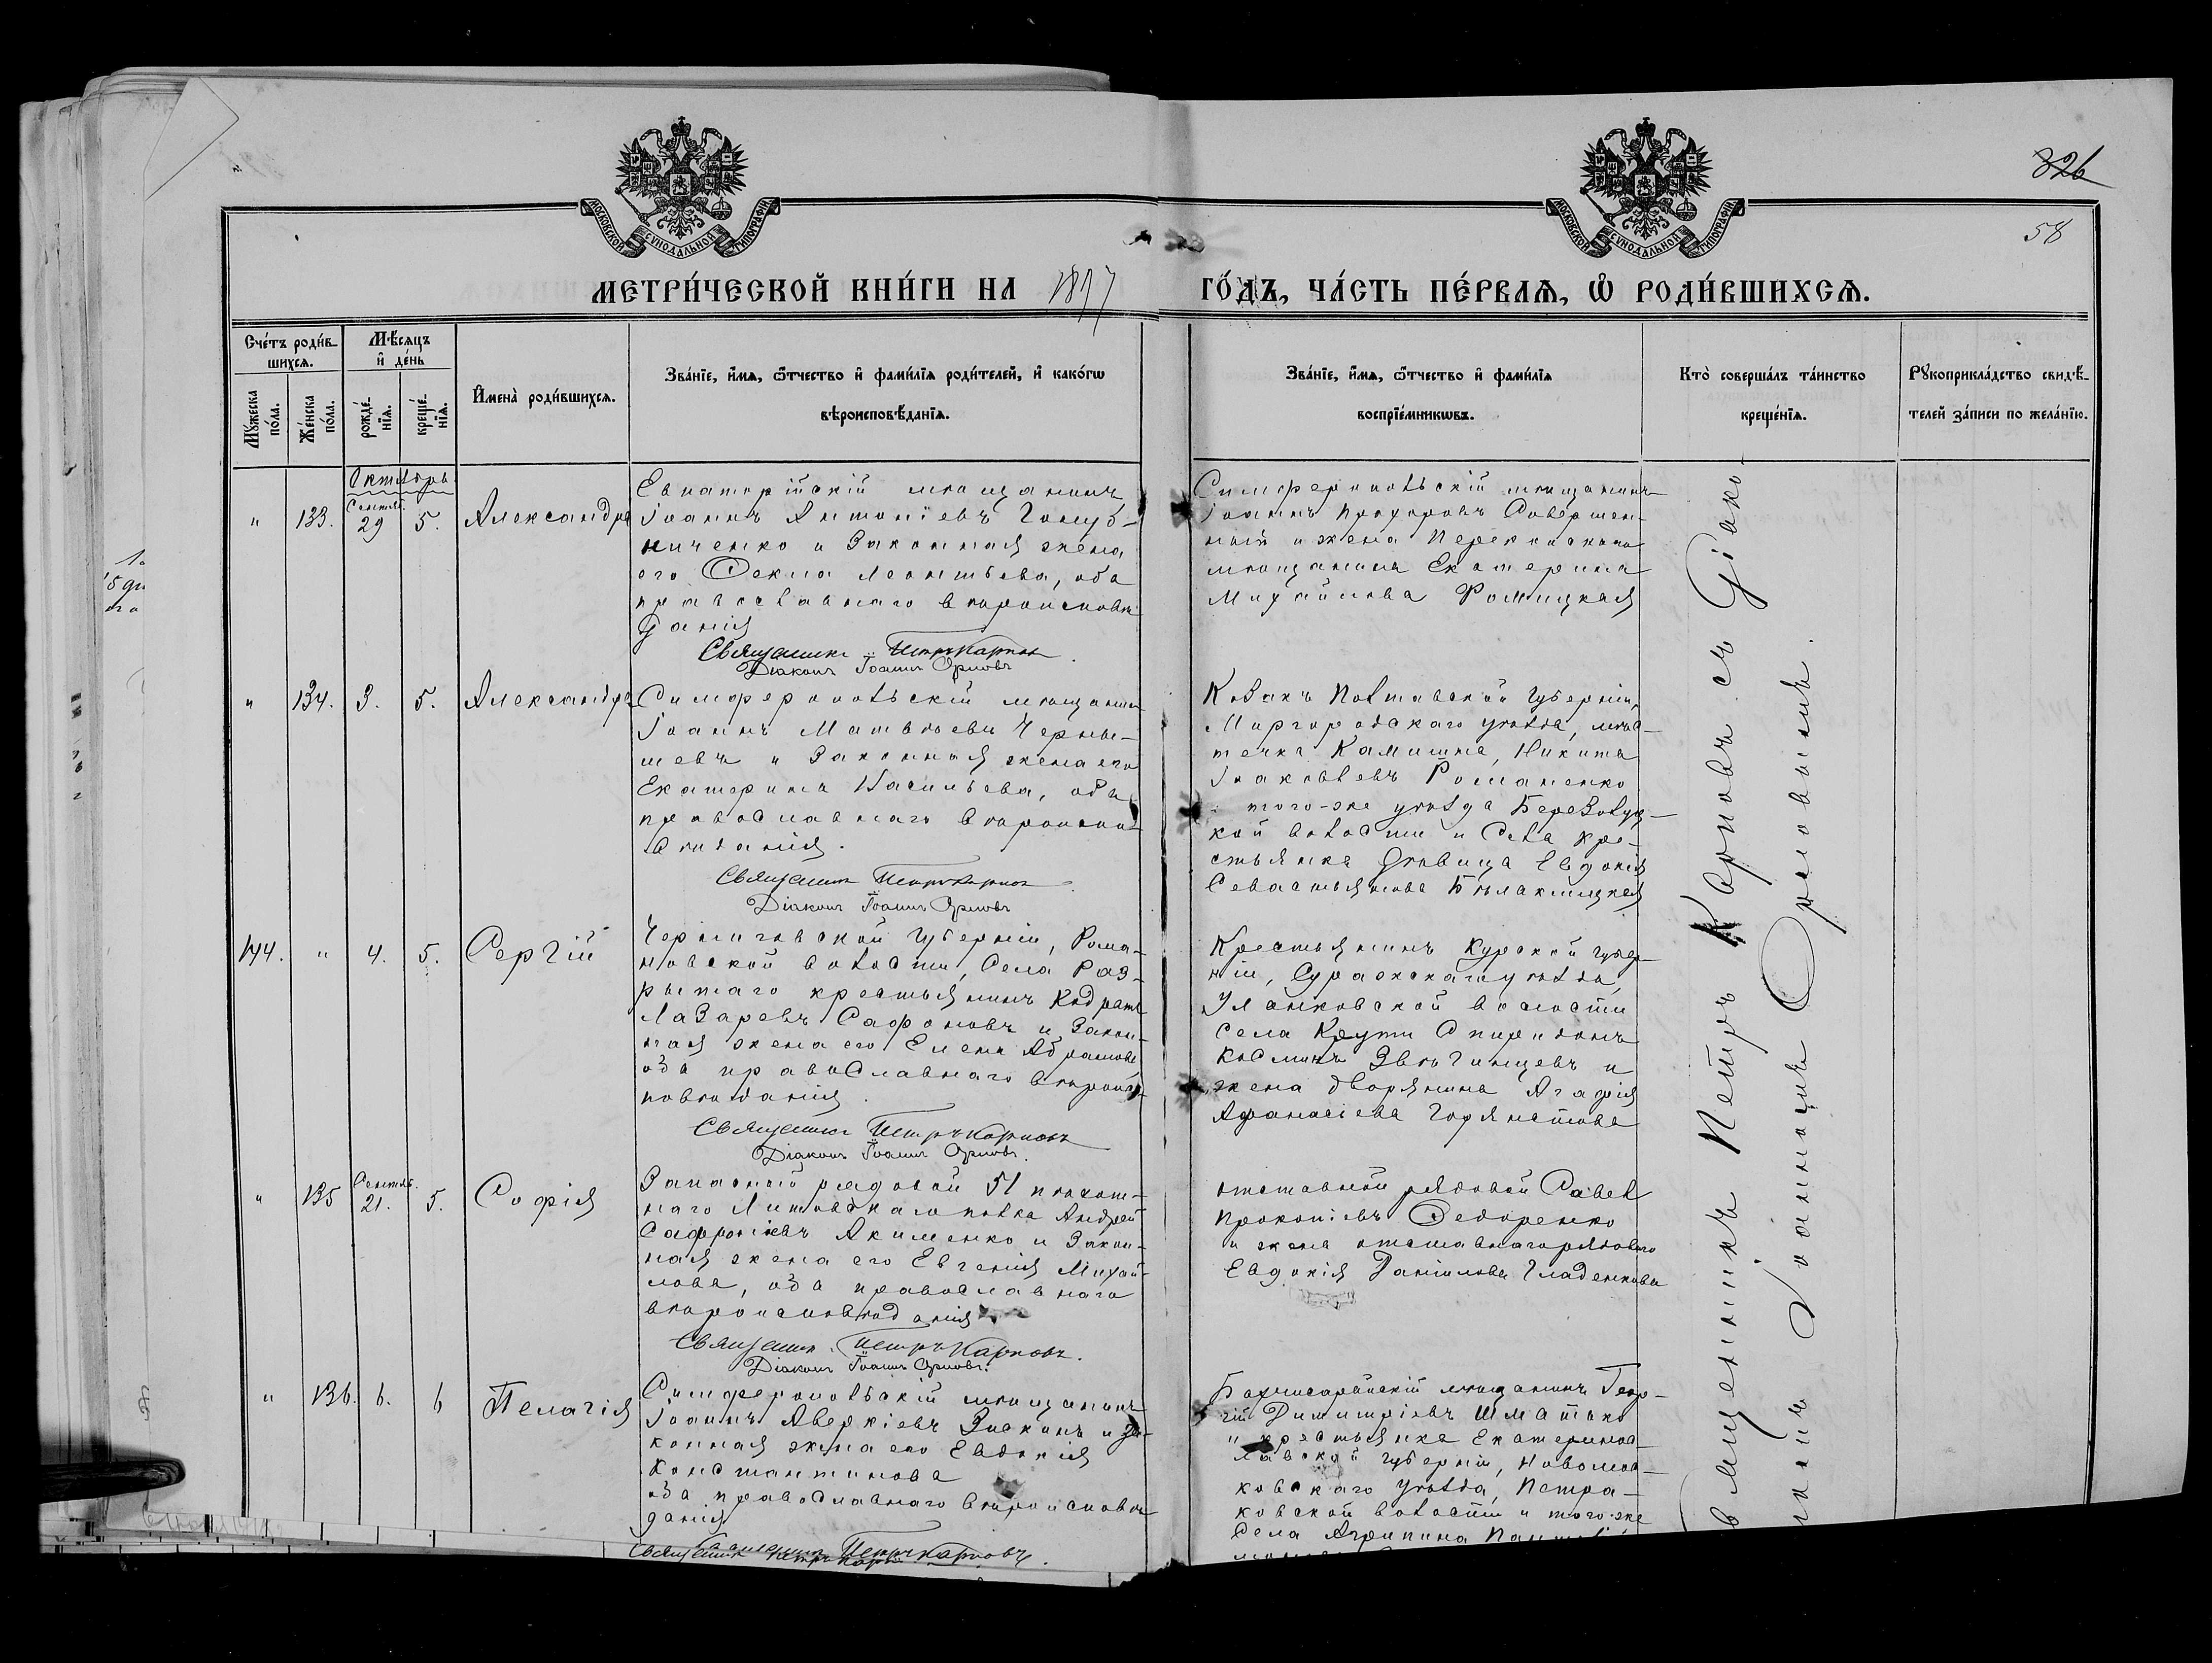 826
58
МОСКОВСКОЙ СУНОДАЛЬНОЙ ТИПОГРАФІИ
МОСКОВСКОЙ СУНОДАЛЬНОЙ ТИПОГРАФІИ
МЕТРИ́ЧЕСКОЙ КНИ́ГИ НА 1897 ГО́ДЪ, ЧА́СТЬ ПЕ́РВАѦ, Ѡ҆ РОДИ́ВШИХСѦ.
Сче́тъ роди́в-
шихсѧ.
Мѣ́сѧцъ
и҆ де́нь
Мꙋ́жеска
по́ла.
Же́нска
по́ла.
рожде́-
нїѧ.
креще́-
нїѧ.
И҆мена̀ роди́вшихсѧ.
Зва́нїе, и҆́мѧ, ѻ҆́тчество и҆ фами́лїѧ роди́телей, и҆ како́гѡ
вѣроисповѣ́данїѧ.
Зва́нїе, и҆́мѧ, ѻ҆́тчество и҆ фами́лїѧ
воспрїе́мникѡвъ.
Кто̀ соверша́лъ та́инство
креще́нїѧ.
Рꙋкоприкла́дство свидѣ́-
телей за́писи по жела́нїю.
Октябрь
" 133. Сентяб. 29 5. Александра
Евпаторійскій мѣщанинъ
Іоаннъ Антоніевъ Голуб-
ниченко и законная жена
его Ѳекла Леонтьева, оба
православнаго вѣроисповѣ-
данія
Священникъ Петръ Карповъ
Діаконъ Іоаннъ Орловъ
Симферопольскій мѣщанинъ
Іоаннъ Прохоровъ Совершен-
ный и жена Перекопскаго
мѣщанина Екатерина
Михайлова Ромицкая
" 134. 3. 5. Александра
Симферопольскій мѣщанинъ
Іоаннъ Матвѣевъ Черны-
шевъ и законная жена его
Екатерина Васильева, оба
православнаго вѣроиспо-
вѣданія.
Священникъ Петръ Карповъ
Діаконъ Іоаннъ Орловъ
Козакъ Полтавской губерніи,
Миргородскаго уѣзда, мѣс-
течка Камышна, Никита
Іаковлевъ Романенко
и того-же уѣзда
кой волости и села кре-
стьянка дѣвица Евдокія
Севастьянова
144. " 4. 5. Сергій
Черниговской губерніи, Рома-
новской волости, села Раз-
рытаго крестьянинъ Кодратъ
Лазаревъ Сафоновъ и закон-
ная жена его Елена Абрамова
оба православнаго вѣроис-
повѣданія.
Священникъ Петръ Карповъ
Діаконъ Іоаннъ Орловъ.
Крестьянинъ Курской губер-
ніи, Суджскаго уѣзда,
Уланковской волости
села Спиридонъ
Косминъ Звѣгинцевъ и
жена дворянина Агафія
Афанасіева
" 135 Сентяб. 21. 5. Софія
Запасной рядовой 51 пѣхот-
наго Литовскаго полка Андрей
Сафроніевъ Акименко и закон-
ная жена его Евгенія Михай-
лова, оба православнаго
вѣроисповѣданія
Священник. Петръ Карповъ.
Діаконъ Іоаннъ Орловъ.
отставной рядовой Савел
Прокопіевъ Ѳедоренко
и жена отставнаго рядового
Евдокія Даніилова Гладенкова
" 136. 6. 6 Пелагія
Симферопольскій мѣщанинъ
Іоаннъ Аверкіевъ и за-
конная жена его Евдокія
Константинова
оба православнаго вѣроисповѣ-
данія
Священникъ Петръ Карповъ.
Бахчисарайскій мѣщанинъ Геор-
гій Димитріевъ Шматько
и крестьянка Екатеринос-
лавской губерніи, Новомос-
ковскаго уѣзда, Петра-
ковской волости и того-же
села Агрипина
Священникъ Петръ Карповъ съ Діако-
номъ Іоанномъ Орловымъ.